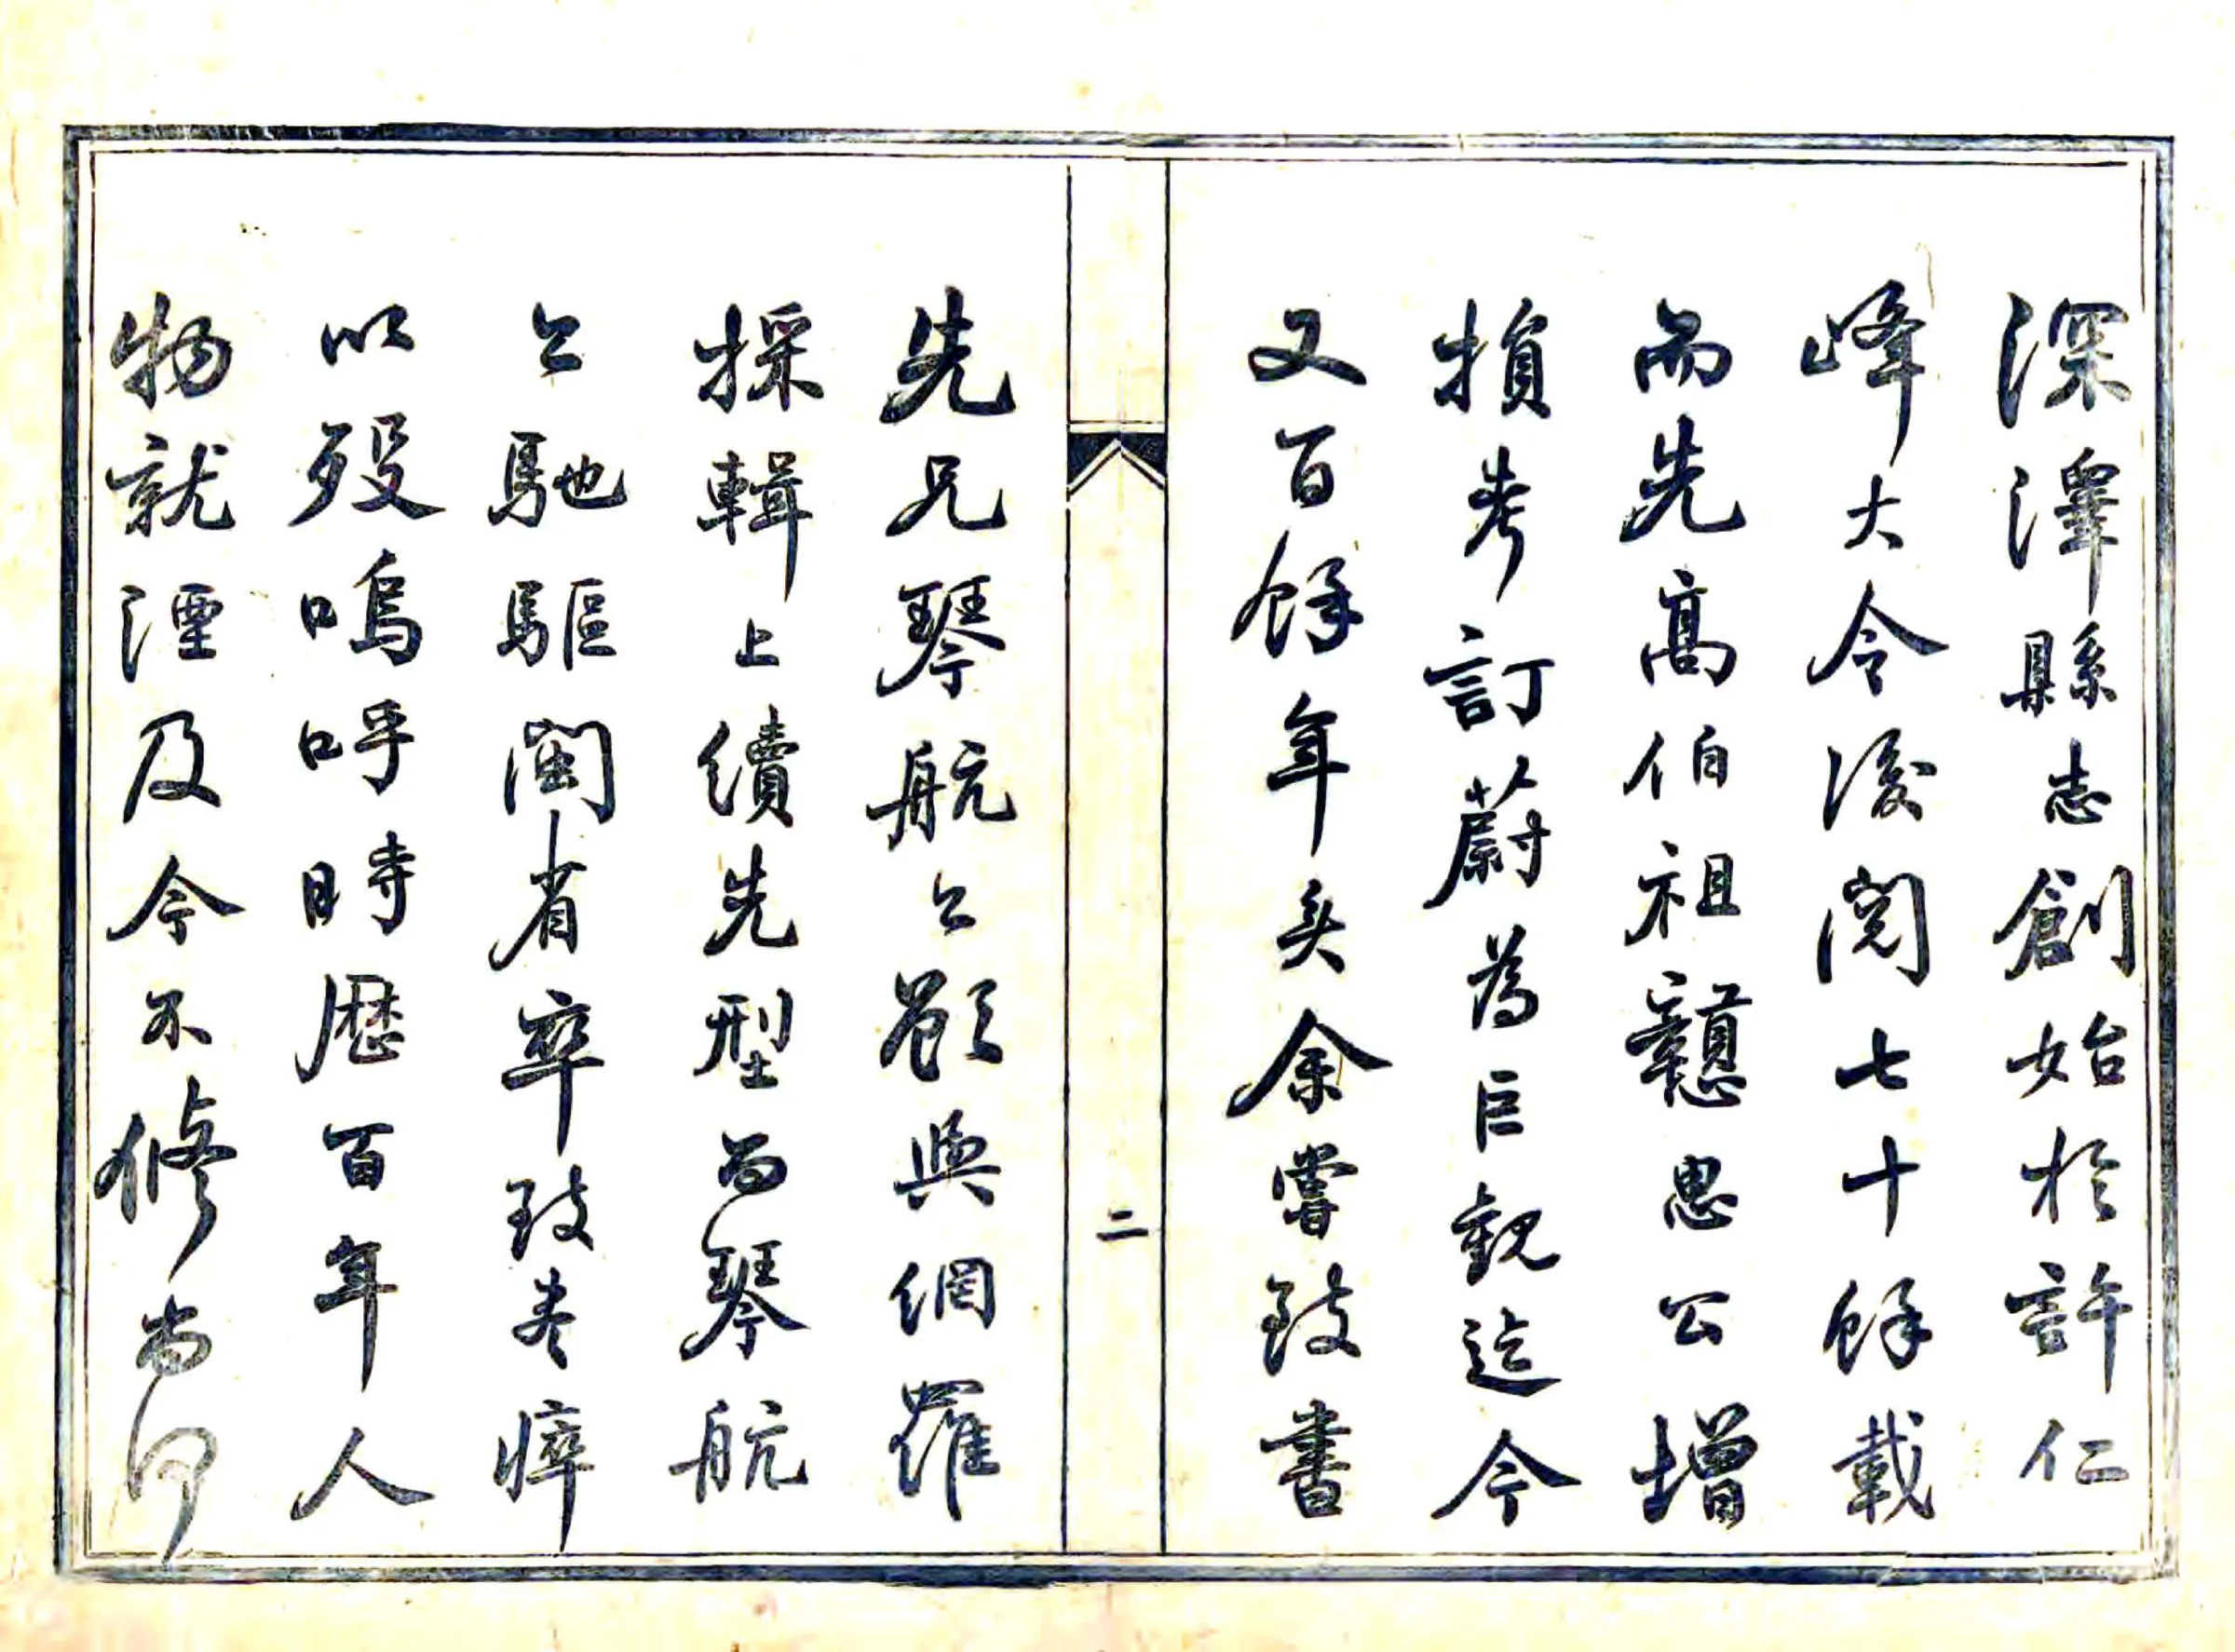 深澤縣志創始於許仁
峰大令後閱七十餘載
而先高伯祖戇愚公增
損考訂蔚為巨觀迄今
又百餘年矣余嘗致書
二
先兄琴航公欲與網羅
採輯上續先型而琴航
公馳驅閩省卒致盡瘁
以歿嗚呼時歷百年人
物就湮及今不修尚何